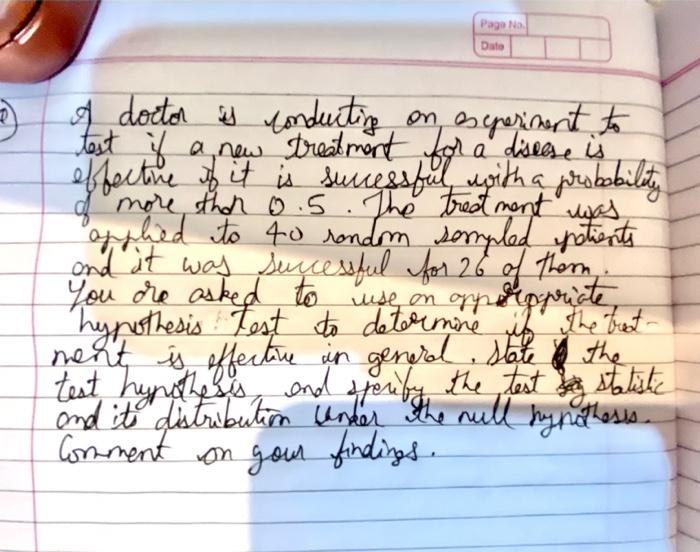 Page No.
Date
A doctor is conducting an experiment to
test if a new treatment for a disease is
effective if it is successful with a probability
of more than 0.5. The treatment was
applied to 40 random sampled patients
and it was successful for 26 of them.
You are asked to use an appropriate
hypothesis test to determine if the treat-
ment is effective in general. State the
test hypothesis, and specify the test statistic
and its distribution under the null hypothesis.
Comment on your findings.